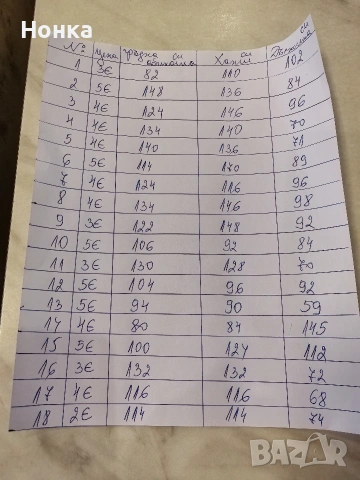 Honka
№ Цена гръдна см обиколка Ханш см Дължина см
1 3€ 82 110 102
2 5€ 148 136 84
3 4€ 124 146 96
4 4€ 134 140 70
5 4€ 140 136 71
6 5€ 114 170 89
7 4€ 124 116 96
8 4€ 134 146 98
9 3€ 122 148 92
10 5€ 106 92 84
11 3€ 130 128 70
12 5€ 104 96 92
13 5€ 94 90 59
14 4€ 80 84 145
15 5€ 100 127 112
16 3€ 132 132 72
17 4€ 116 116 68
18 2€ 114 114 74
BAZAR